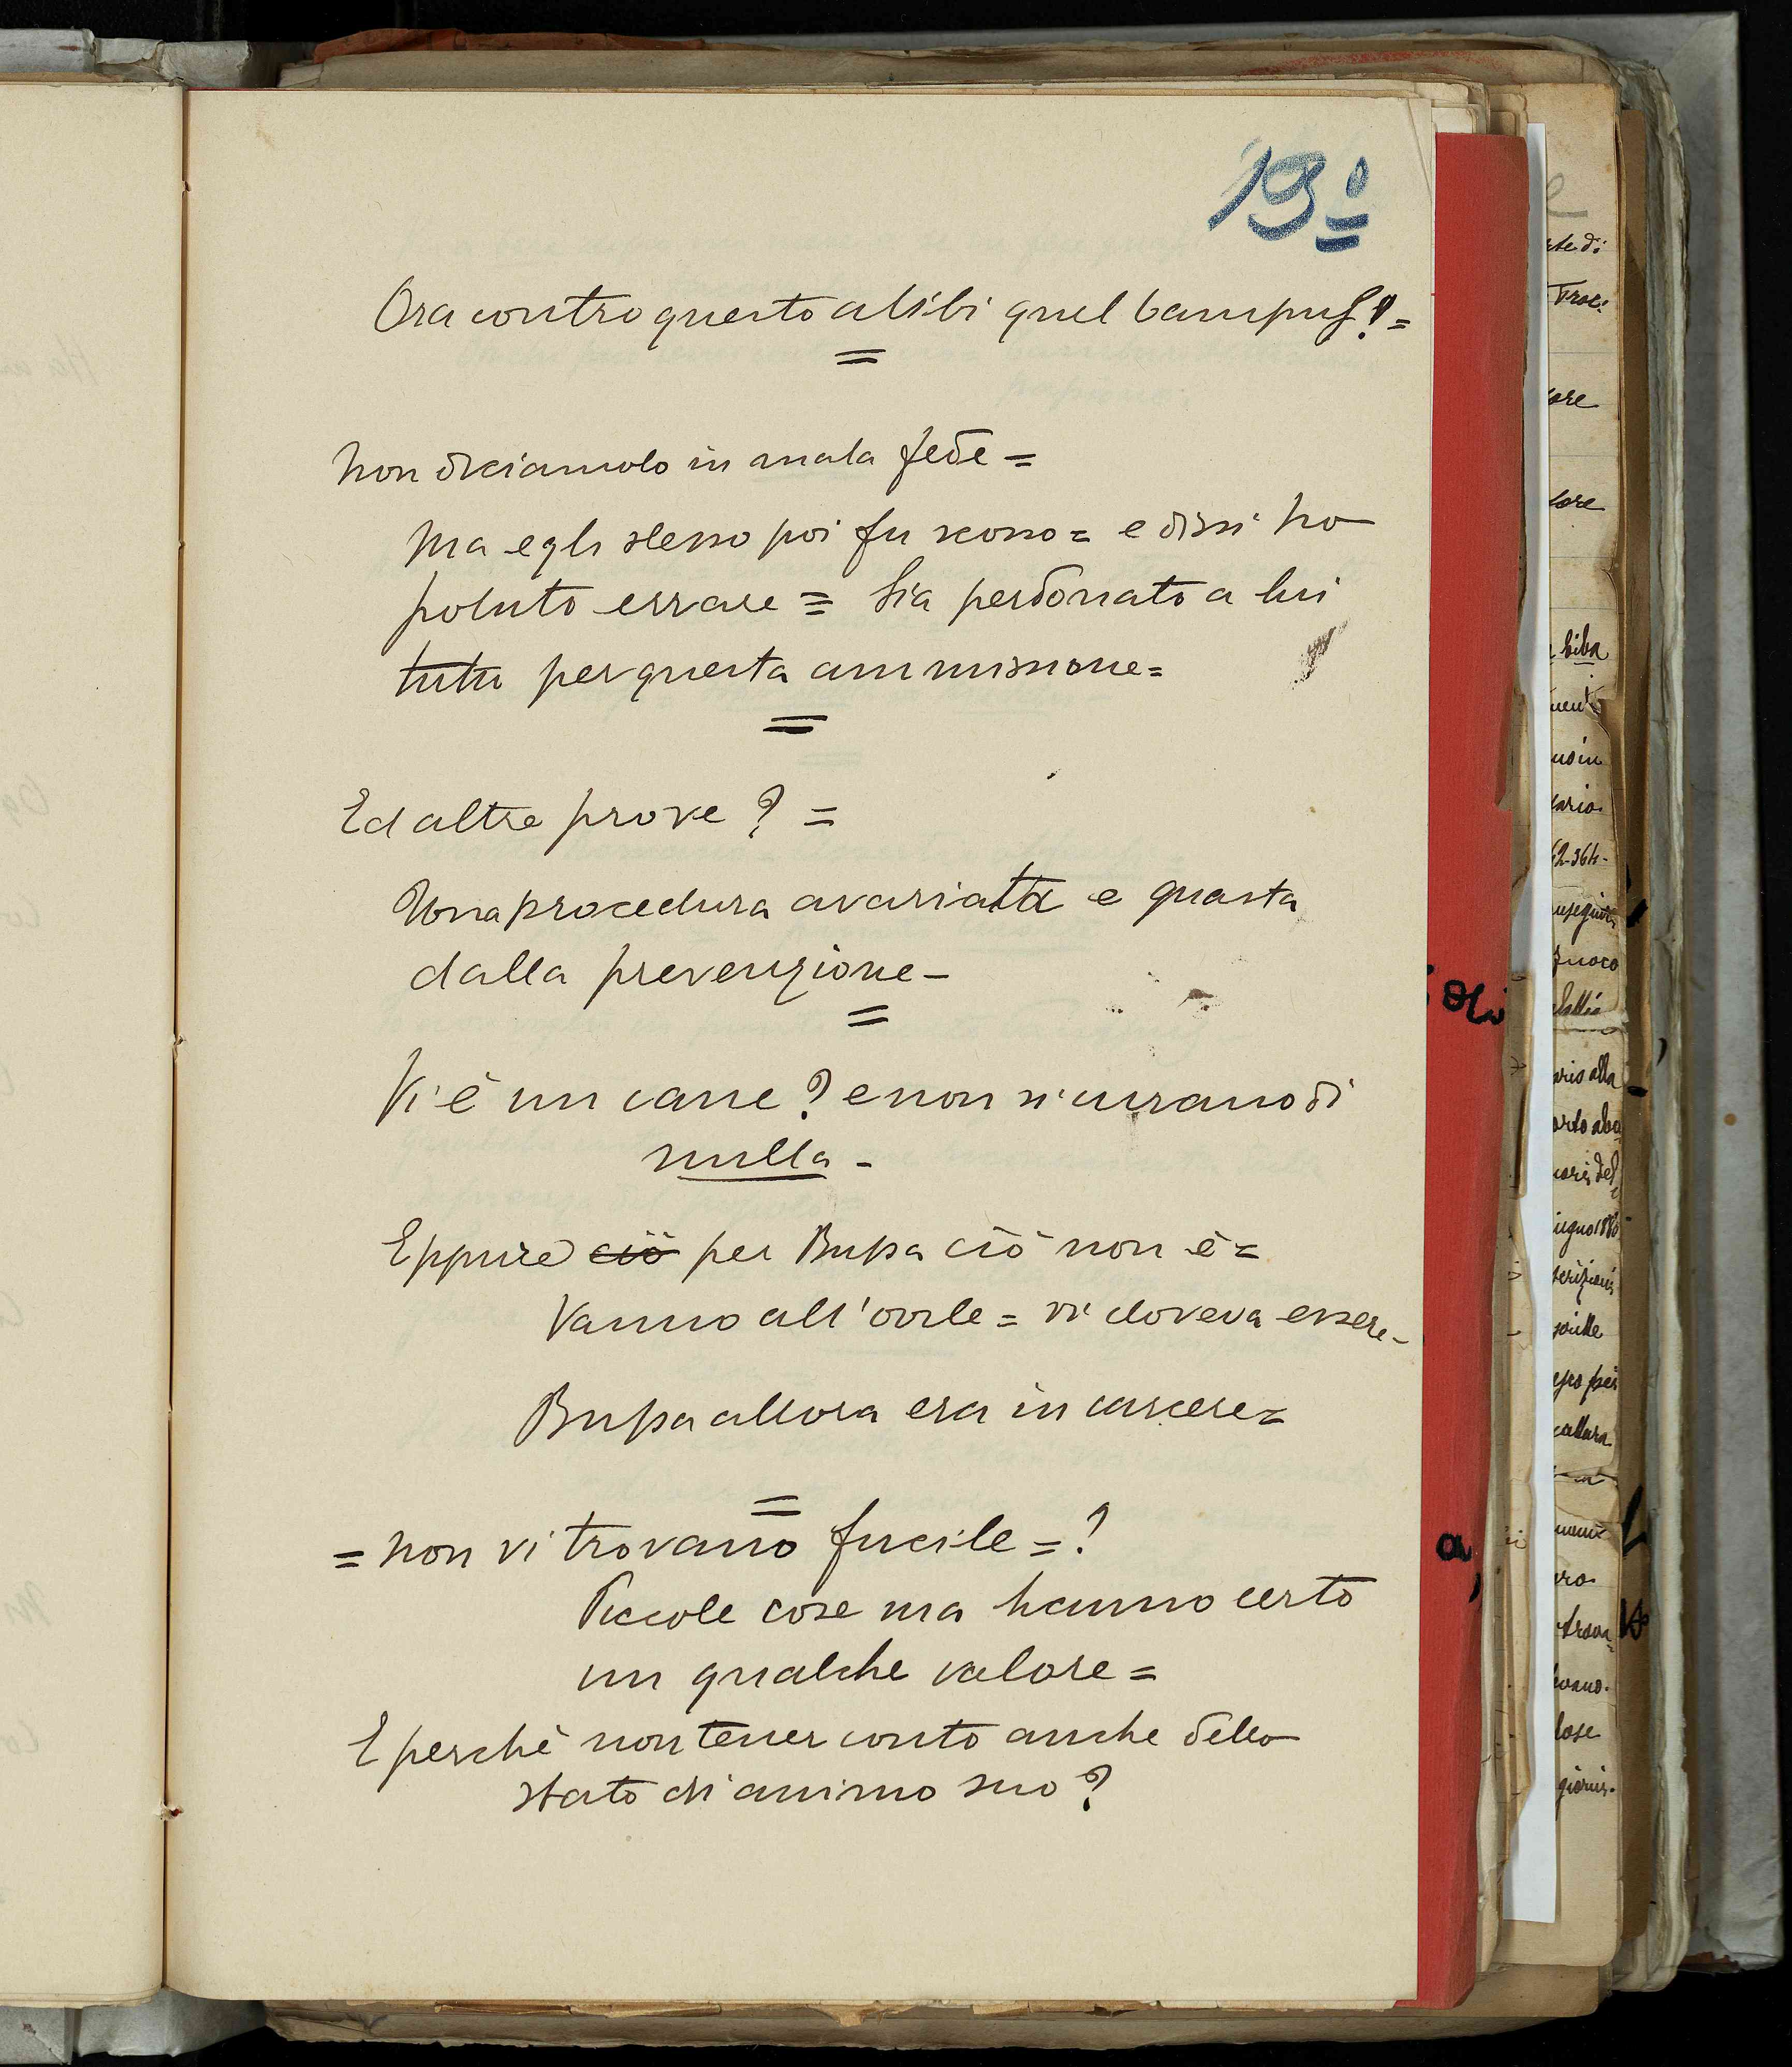 13º
Ora contro questo alibi quel Campus!=
Non diciamolo in mala fede=
Ma egli stesso poi fu scosso= e dissi ho
potuto errare= Sia perdonato a lui
per questa ammissione=
Ed altre prove?=
Una procedura avariata e guasta
dalla prevenzione-
Vi è un cane? e non si curano di
nulla-
Eppure ciò per Bupa ciò non è=
Vanno all'ovile= vi doveva essere-
Bupa allora era in carcere=
=non vi trovano fucile=?
Piccole cose ma hanno certo
un qualche valore=
E perchè non tener conto anche dello
stato di animo suo?